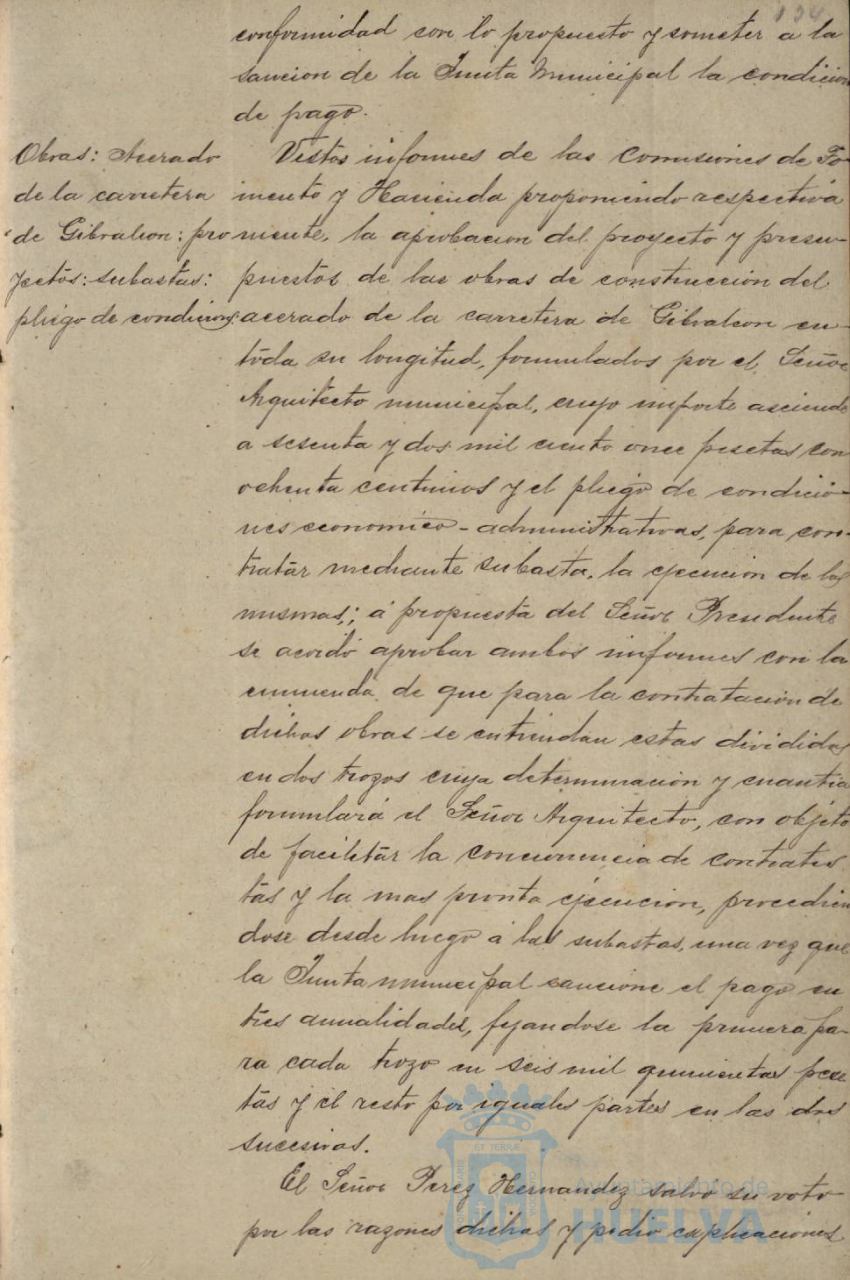 134
conformidad con lo propuesto y someter a la
sancion de la Junta Municipal la condicion
de pago.
Obras: Acerado
de la carretera
de Gibraleon: pro
yectos: subastas:
pliego de condiciones.
Vistos informes de las Comisiones de Fo-
mento y Hacienda proponiendo respectiva
mente, la aprobacion del proyecto y presu-
puestos de las obras de construccion del
acerado de la carretera de Gibraleon en
toda su longitud, formulados por el Señor
Arquitecto municipal, cuyo importe asciende
a sesenta y dos mil ciento once pesetas con
ochenta centimos y el pliego de condicio-
nes economico-administrativas, para con-
tratar mediante subasta, la ejecucion de las
mismas; á propuesta del Señor Presidente
se acordó aprobar ambos informes con la
enmienda de que para la contratacion de
dichas obras se entiendan estas divididas
en dos trozos cuya determinación y cuantia
formulará el Señor Arquitecto, con objeto
de facilitar la concurrencia de contratis
tas y la mas pronta ejecucion, procedien
dose desde luego á las subastas, una vez que
la Junta municipal sancione el pago en
tres anualidades, fijandose la primera pa-
ra cada trozo en seis mil quinientas pese
tas y el resto por iguales partes en las dos
sucesivas.
El Señor Perez Hernandez salvó su voto
por las razones dichas y pidió explicaciones
Ayuntamiento de
HUELVA